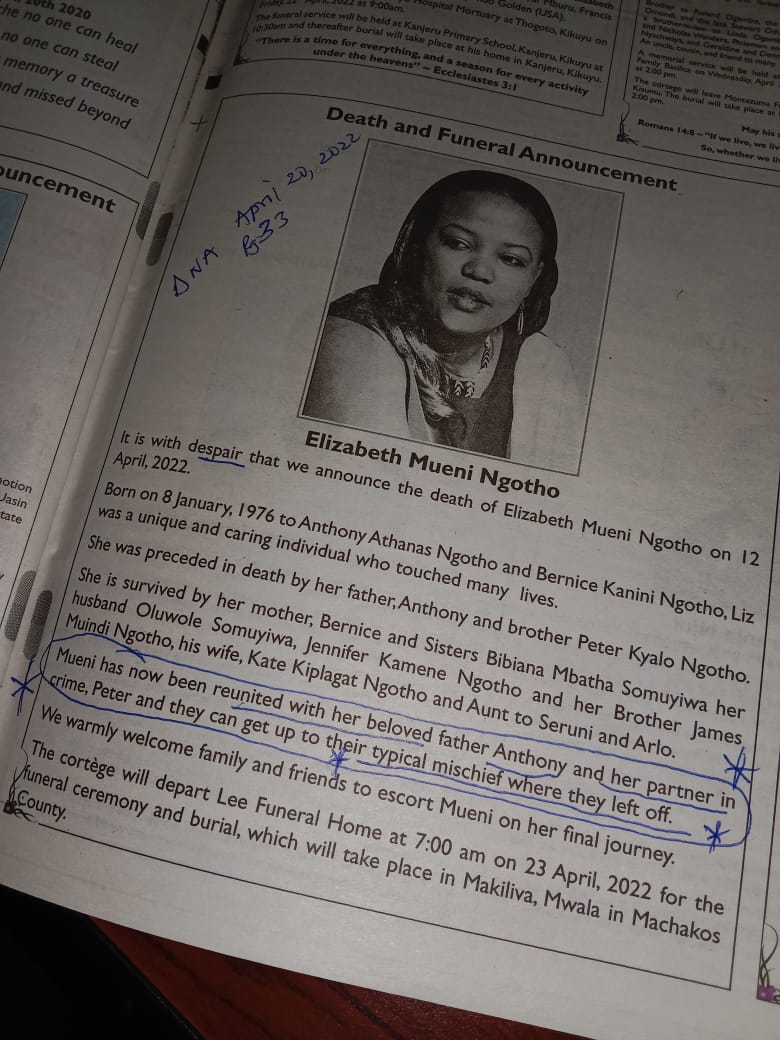 10th 2020
he no one can heal
no one can steal
memory a treasure
nd missed beyond
ouncement
otion
Jasin
tate
April, 2022 at 9:00am.
Hospital Mortuary at Thogoto, Kikuyu on
Golden (USA).
Mburu, Francis
The funeral service will be held at Kanjeru Primary School, Kanjeru, Kikuyu at
10:30am and thereafter burial will take place at his home in Kanjeru, Kikuyu.
"There is a time for everything, and a season for every activity
under the heavens" – Ecclesiastes 3:1
An uncle, cousin, and friend to many
A memorial service will be held
Family Basilica on Wednesday, April
at 2:00 pm.
The cortege will leave Montezuma
Kisumu. The burial will take place at
2:00 pm.
May his
Romans 14:8 – "If we live, we
So, whether we
Death and Funeral Announcement
DNA April 20, 2022
Pg 33
Elizabeth Mueni Ngotho
It is with despair that we announce the death of Elizabeth Mueni Ngotho on 12
April, 2022.
Born on 8 January, 1976 to Anthony Athanas Ngotho and Bernice Kanini Ngotho, Liz
was a unique and caring individual who touched many lives.
She was preceded in death by her father, Anthony and brother Peter Kyalo Ngotho.
She is survived by her mother, Bernice and Sisters Bibiana Mbatha Somuyiwa her
husband Oluwole Somuyiwa, Jennifer Kamene Ngotho and her Brother James
Muindi Ngotho, his wife, Kate Kiplagat Ngotho and Aunt to Seruni and Arlo.
Mueni has now been reunited with her beloved father Anthony and her partner in
crime, Peter and they can get up to their typical mischief where they left off.
We warmly welcome family and friends to escort Mueni on her final journey.
The cortège will depart Lee Funeral Home at 7:00 am on 23 April, 2022 for the
funeral ceremony and burial, which will take place in Makiliva, Mwala in Machakos
County.